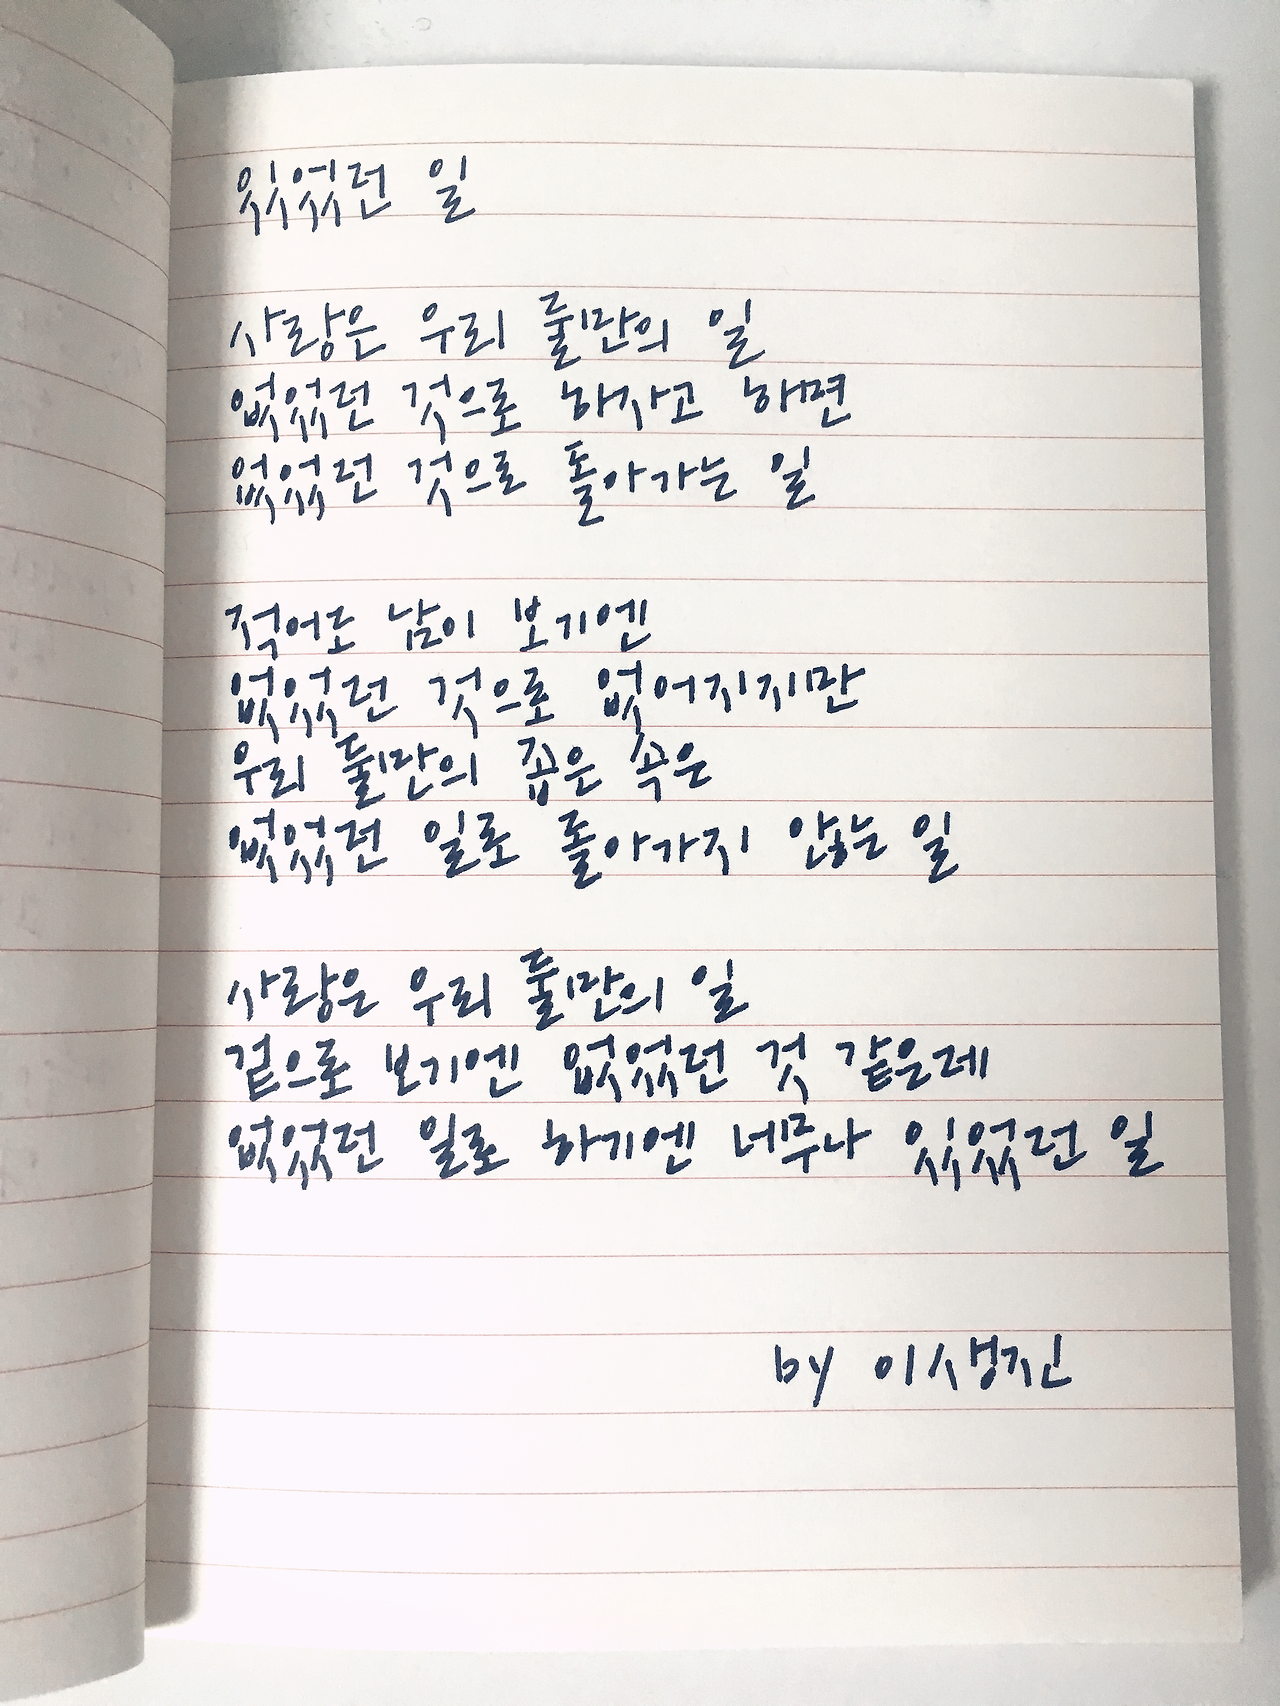 있었던 일
사랑은 우리 둘만의 일
없었던 것으로 하자고 하면
없었던 것으로 돌아가는 일
적어도 남이 보기엔
없었던 것으로 없어지지만
우리 둘만의 좁은 속은
없었던 일로 돌아가지 않는 일
사랑은 우리 둘만의 일
겉으로 보기엔 없었던 것 같은데
없었던 일로 하기엔 너무나 있었던 일
by 이생진